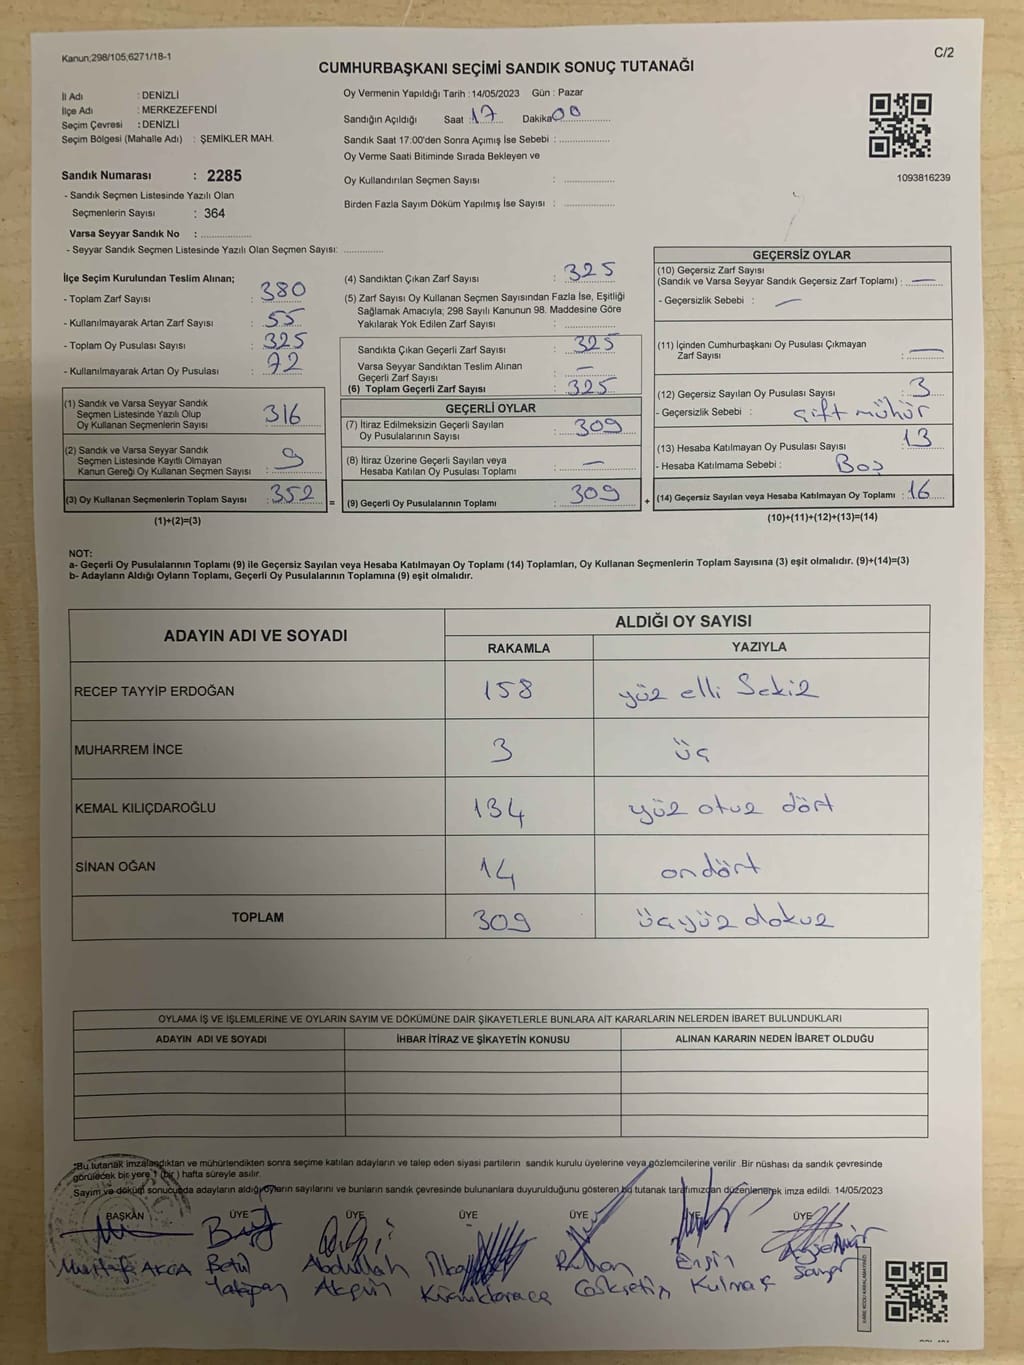 Kanun;298/105;6271/18-1
C/2
CUMHURBAŞKANI SEÇİMİ SANDIK SONUÇ TUTANAĞI
İl Adı : DENİZLİ
İlçe Adı : MERKEZEFENDİ
Seçim Çevresi : DENİZLİ
Seçim Bölgesi (Mahalle Adı) : ŞEMİKLER MAH.
Oy Vermenin Yapıldığı Tarih : 14/05/2023 Gün : Pazar
Sandığın Açıldığı Saat : 17 Dakika 00
Sandık Saat 17:00'den Sonra Açımış İse Sebebi :
Oy Verme Saati Bitiminde Sırada Bekleyen ve
Oy Kullandırılan Seçmen Sayısı :
Birden Fazla Sayım Döküm Yapılmış İse Sayısı :
1093816239
Sandık Numarası : 2285
- Sandık Seçmen Listesinde Yazılı Olan
Seçmenlerin Sayısı : 364
Varsa Seyyar Sandık No :
- Seyyar Sandık Seçmen Listesinde Yazılı Olan Seçmen Sayısı:
İlçe Seçim Kurulundan Teslim Alınan;
- Toplam Zarf Sayısı : 380
- Kullanılmayarak Artan Zarf Sayısı : 55
- Toplam Oy Pusulası Sayısı : 325
- Kullanılmayarak Artan Oy Pusulası : 72
(1) Sandık ve Varsa Seyyar Sandık
Seçmen Listesinde Yazılı Olup
Oy Kullanan Seçmenlerin Sayısı : 316
(2) Sandık ve Varsa Seyyar Sandık
Seçmen Listesinde Kayıtlı Olmayan
Kanun Gereği Oy Kullanan Seçmen Sayısı : 9
(3) Oy Kullanan Seçmenlerin Toplam Sayısı : 352
(1)+(2)=(3)
(4) Sandıktan Çıkan Zarf Sayısı : 325
(5) Zarf Sayısı Oy Kullanan Seçmen Sayısından Fazla İse, Eşitliği
Sağlamak Amacıyla; 298 Sayılı Kanunun 98. Maddesine Göre
Yakılarak Yok Edilen Zarf Sayısı :
Sandıkta Çıkan Geçerli Zarf Sayısı : 325
Varsa Seyyar Sandıktan Teslim Alınan
Geçerli Zarf Sayısı : —
(6) Toplam Geçerli Zarf Sayısı : 325
GEÇERLİ OYLAR
(7) İtiraz Edilmeksizin Geçerli Sayılan
Oy Pusulalarının Sayısı : 309
(8) İtiraz Üzerine Geçerli Sayılan veya
Hesaba Katılan Oy Pusulası Toplamı : —
= (9) Geçerli Oy Pusulalarının Toplamı : 309
GEÇERSİZ OYLAR
(10) Geçersiz Zarf Sayısı
(Sandık ve Varsa Seyyar Sandık Geçersiz Zarf Toplamı) : —
- Geçersizlik Sebebi : —
(11) İçinden Cumhurbaşkanı Oy Pusulası Çıkmayan
Zarf Sayısı : —
(12) Geçersiz Sayılan Oy Pusulası Sayısı : 3
- Geçersizlik Sebebi : çift mühür
(13) Hesaba Katılmayan Oy Pusulası Sayısı : 13
- Hesaba Katılmama Sebebi : Boş
+ (14) Geçersiz Sayılan veya Hesaba Katılmayan Oy Toplamı : 16
(10)+(11)+(12)+(13)=(14)
NOT:
a- Geçerli Oy Pusulalarının Toplamı (9) ile Geçersiz Sayılan veya Hesaba Katılmayan Oy Toplamı (14) Toplamları, Oy Kullanan Seçmenlerin Toplam Sayısına (3) eşit olmalıdır. (9)+(14)=(3)
b- Adayların Aldığı Oyların Toplamı, Geçerli Oy Pusulalarının Toplamına (9) eşit olmalıdır.
ADAYIN ADI VE SOYADI
ALDIĞI OY SAYISI
RAKAMLA YAZIYLA
RECEP TAYYİP ERDOĞAN 158 yüz elli Sekiz
MUHARREM İNCE 3 üç
KEMAL KILIÇDAROĞLU 134 yüz otuz dört
SİNAN OĞAN 14 ondört
TOPLAM 309 üçyüz dokuz
OYLAMA İŞ VE İŞLEMLERİNE VE OYLARIN SAYIM VE DÖKÜMÜNE DAİR ŞİKAYETLERLE BUNLARA AİT KARARLARIN NELERDEN İBARET BULUNDUKLARI
ADAYIN ADI VE SOYADI İHBAR İTİRAZ VE ŞİKAYETİN KONUSU ALINAN KARARIN NEDEN İBARET OLDUĞU
*Bu tutanak imzalandıktan ve mühürlendikten sonra seçime katılan adayların ve talep eden siyasi partilerin sandık kurulu üyelerine veya gözlemcilerine verilir .Bir nüshası da sandık çevresinde
görülecek bir yere 1 (bir ) hafta süreyle asılır.
Sayım ve döküm sonucunda adayların aldığı oyların sayılarını ve bunların sandık çevresinde bulunanlara duyurulduğunu gösteren bu tutanak tarafımızdan düzenlenerek imza edildi. 14/05/2023
BAŞKAN ÜYE ÜYE ÜYE ÜYE ÜYE ÜYE
Mustafa AKCA Betül Abdullah Ersin
Kulmaç